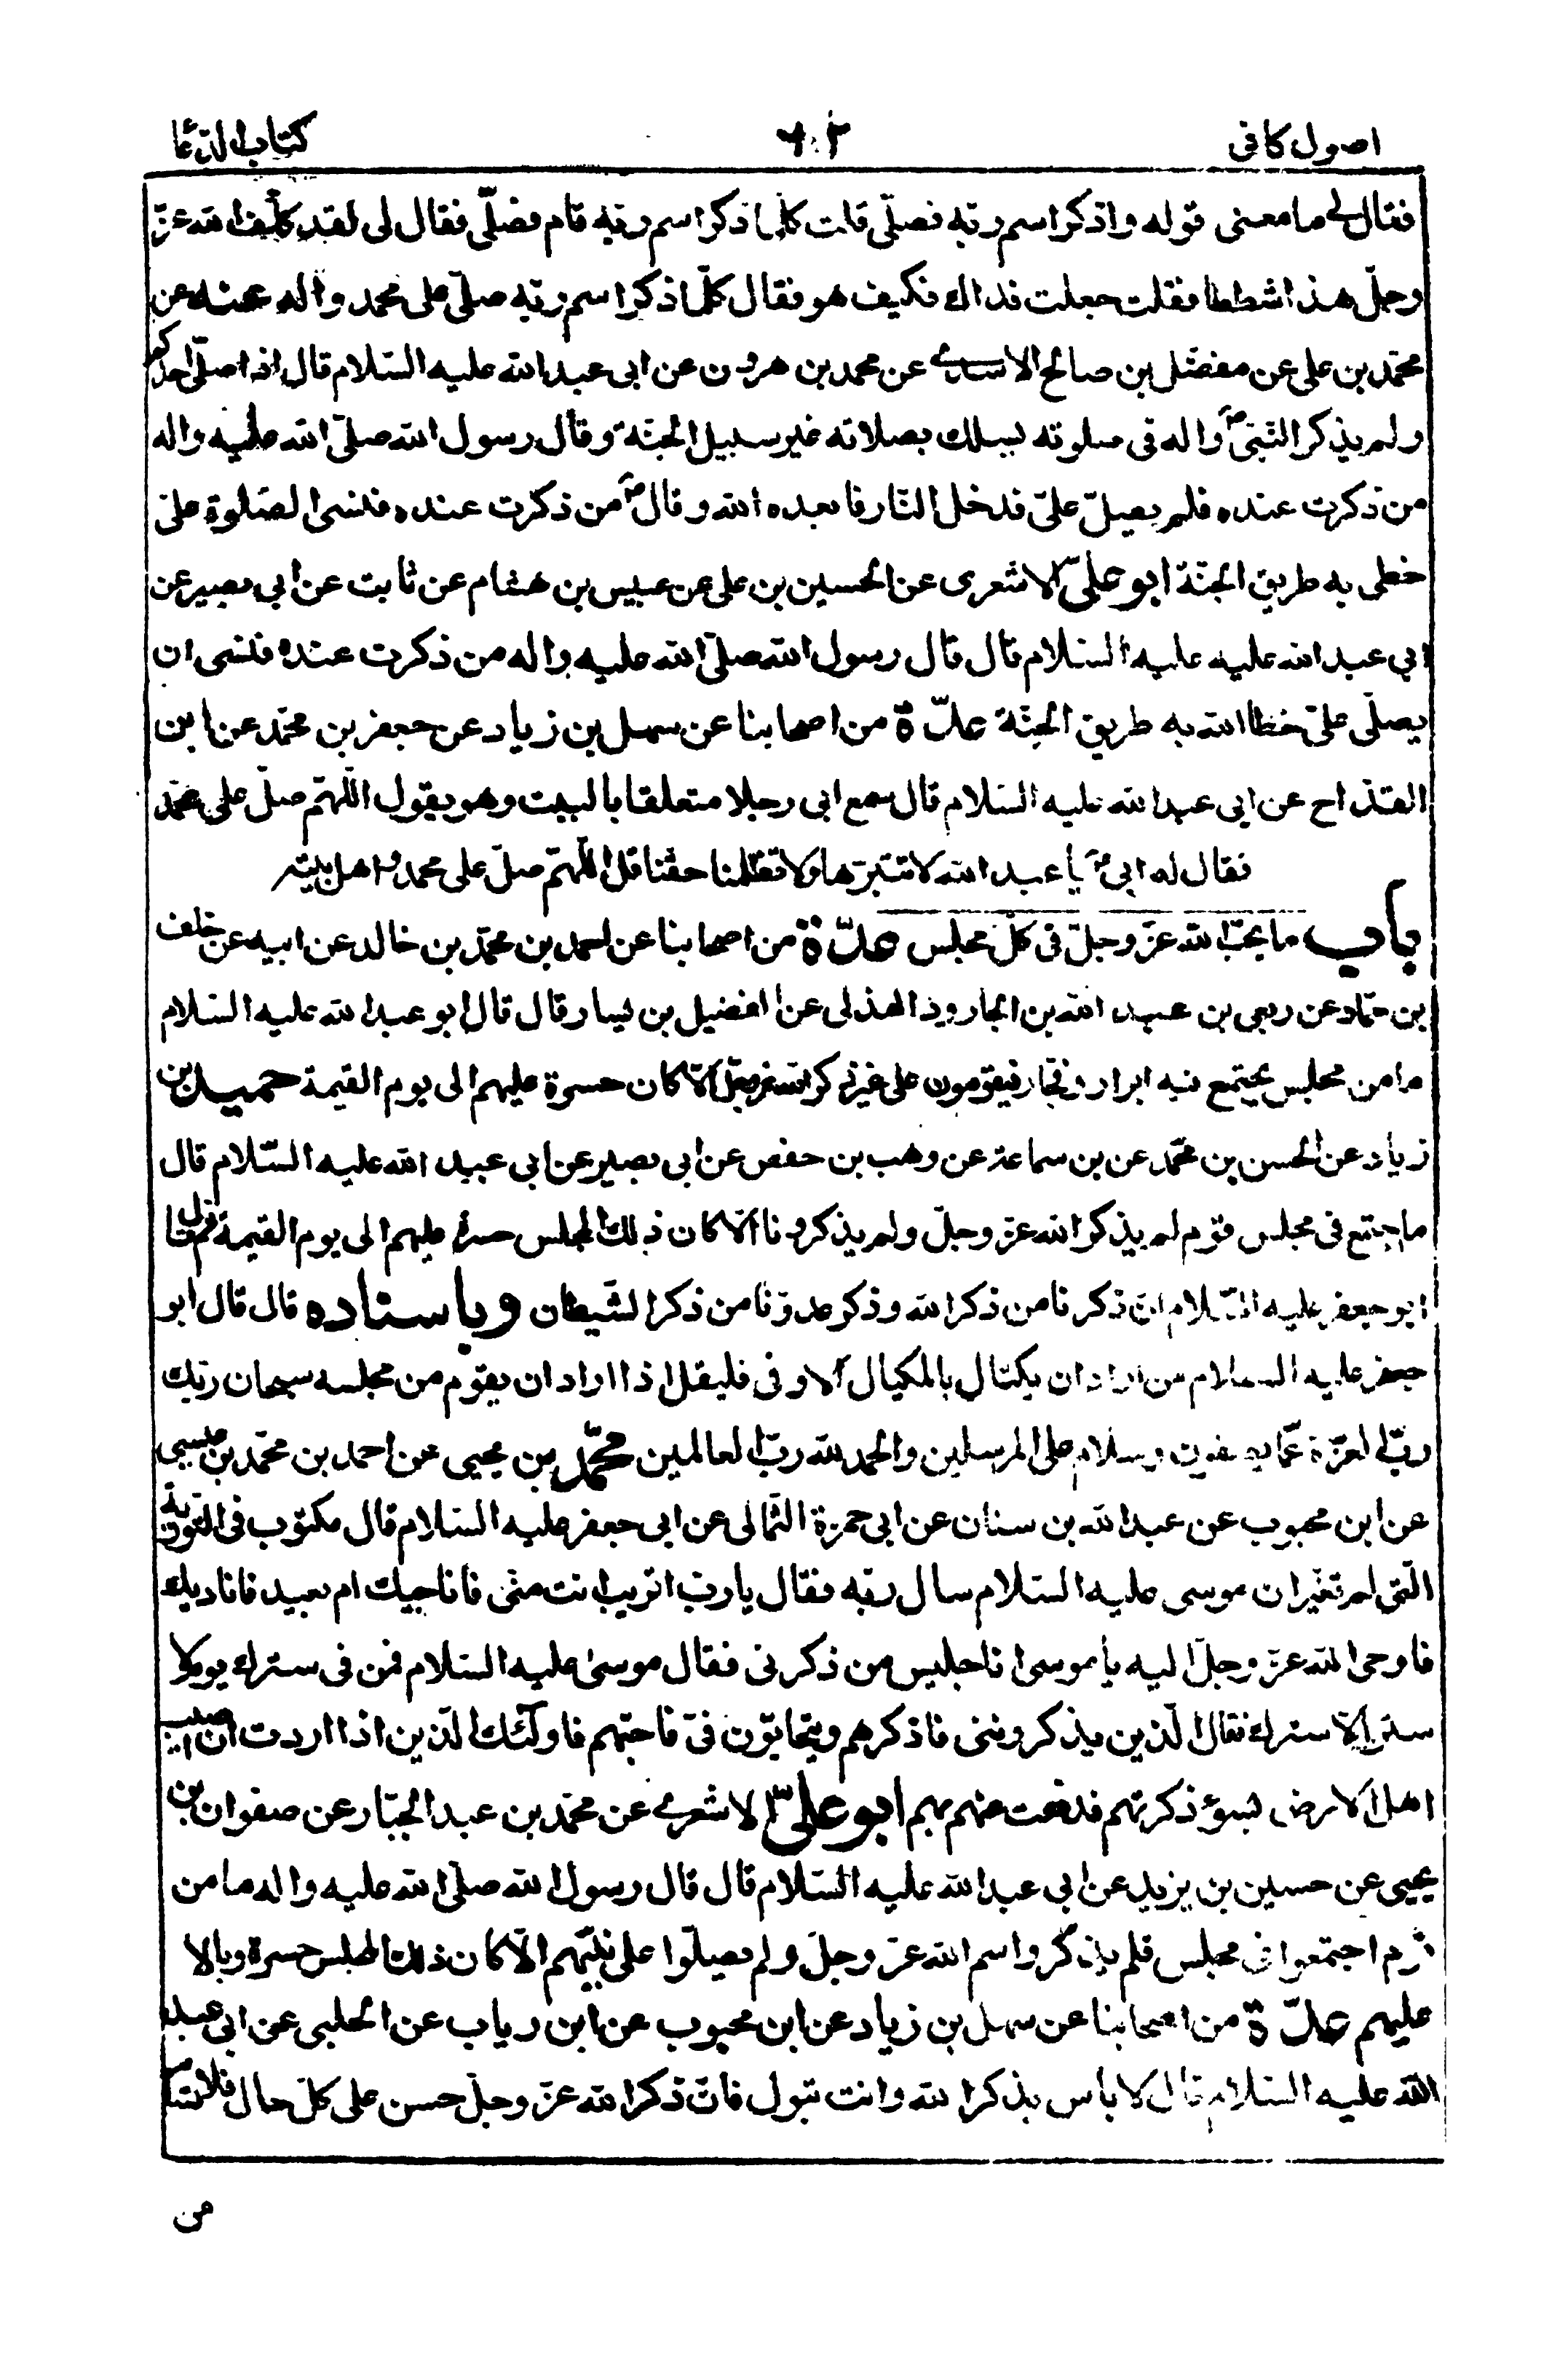 اصول كافى ٦٠٢ كتاب الدّعا
فقال لى ما معنى قوله واذكر اسم ربّه فصلّى قلت كلّما ذكر اسم ربّه قام فصلّى فقال لى لقد كلّف الله عزّ
وجلّ هذا شططا فقلت جعلت فداك فكيف هو فقال كلّما ذكر اسم ربّه صلّى على محمد واله عنه عن
محمّد بن على عن مفضّل بن صالح الاسدى عن محمد بن هرون عن ابى عبد الله عليه السّلام قال اذا صلّى احدكم
ولم يذكر النّبىّ ص واله فى صلوته يسلك بصلاته غير سبيل الجنّة وقال رسول الله صلّى الله عليه واله
من ذكرت عنده فلم يصلّ علىّ فدخل النّار فابعده الله وقال ص من ذكرت عنده فنسى الصّلوة علىّ
خطى به طريق الجنّة ابو علىّ الاشعرى عن الحسين بن على عن عبيس بن هشام عن ثابت عن ابى بصير عن
ابى عبد الله عليه عليه السّلام قال قال رسول الله صلّى الله عليه واله من ذكرت عنده فنسى ان
يصلّى علىّ خطا الله به طريق الجنّة عدّة من اصحابنا عن سهل بن زياد عن جعفر بن محمّد عن ابن
القدّاح عن ابى عبد الله عليه السّلام قال سمع ابى رجلا متعلقا بالبيت وهو يقول اللّهمّ صلّ على محمّد
فقال له ابى ع يا عبد الله لا تبترها ولا تظلمنا حقّنا قل اللّهمّ صلّ على محمد واهل بيته
باب ما يجب لله عزّ وجلّ فى كلّ مجلس عدّة من اصحابنا عن احمد بن محمّد بن خالد عن ابيه عن خلف
بن حمّاد عن ربعى بن عبد الله بن الجارود الهذلى عن الفضيل بن يسار قال قال ابو عبد الله عليه السّلام
ما من مجلس يجتمع فيه ابرار وفجّار فيقومون على غير ذكر الله عزّ وجلّ الاّ كان حسرة عليهم الى يوم القيمة حميد بن
زياد عن الحسن بن محمّد عن بن سماعة عن وهب بن حفص عن ابى بصير عن ابى عبد الله عليه السّلام قال
ما اجتمع فى مجلس قوم لم يذكر الله عزّ وجلّ ولم يذكرونا الاّ كان ذلك المجلس حسرة عليهم الى يوم القيمة ثمّ قال قال
ابو جعفر عليه السّلام انّ ذكرنا من ذكر الله وذكر عدوّنا من ذكر الشّيطان وباسناده قال قال ابو
جعفر عليه السلام من اراد ان يكتال بالمكيال الاوفى فليقل اذا اراد ان يقوم من مجلسه سبحان ربّك
ربّ العزّة عمّا يصفون وسلام على المرسلين والحمد لله ربّ العالمين محمّد بن يحيى عن احمد بن محمّد بن عيسى
عن ابن محبوب عن عبد الله بن سنان عن ابى حمزة الثّمالى عن ابى جعفر عليه السّلام قال مكتوب فى التّورية
الّتى لم تغيّر ان موسى عليه السّلام سال ربّه فقال يا ربّ اقريب انت منّى فاناجيك ام بعيد فاناديك
فاوحى الله عزّ وجلّ اليه يا موسى انا جليس من ذكرنى فقال موسى عليه السّلام فمن فى سترك يوم لا
ستر الاّ سترك فقال الّذين يذكروننى فاذكرهم ويتحابّون فىّ فاحبّهم فاولئك الّذين اذا اردت ان اصيب
اهل الارض بسوء ذكرتهم فدفعت عنهم بهم ابو علىّ الاشعرى عن محمّد بن عبد الجبّار عن صفوان بن
يحيى عن حسين بن يزيد عن ابى عبد الله عليه السّلام قال قال رسول الله صلّى الله عليه واله ما من
قوم اجتمعوا فى مجلس فلم يذكروا اسم الله عزّ وجلّ ولم يصلّوا على نبيّهم الاّ كان ذلك المجلس حسرة وبالا
عليهم عدّة من اصحابنا عن سهل بن زياد عن ابن محبوب عن ابن رياب عن الحلبى عن ابى عبد
الله عليه السّلام قال لا باس بذكر الله وانت تبول فانّ ذكر الله عزّ وجلّ حسن على كلّ حال فلا تسام
من